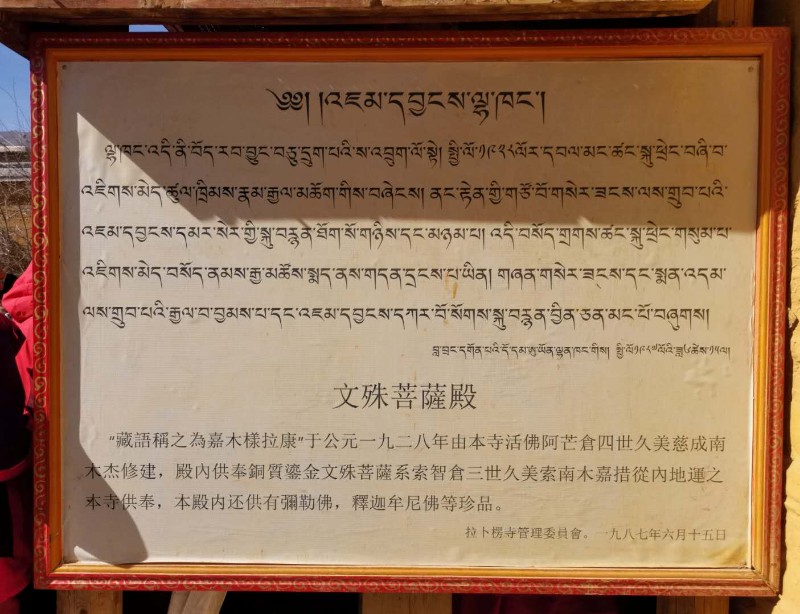 ༄༅། །འཇམ་དབྱངས་ལྷ་ཁང་།
ལྷ་ཁང་འདི་ནི་བོད་རབ་བྱུང་བཅུ་དྲུག་པའི་ས་འབྲུག་ལོ་སྟེ། སྤྱི་ལོ་༡༩༢༨ལོར་དབལ་མང་ཚང་སྐུ་ཕྲེང་བཞི་བ་
འཇིགས་མེད་ཚུལ་ཁྲིམས་རྣམ་རྒྱལ་མཆོག་གིས་བཞེངས། ནང་རྟེན་གྱི་གཙོ་བོ་གསེར་ཟངས་ལས་གྲུབ་པའི་
འཇམ་དབྱངས་དམར་སེར་གྱི་སྐུ་བརྙན་ཐོག་སོ་གཉིས་དང་མཉམ་པ། འདི་བསོད་གྲགས་ཚང་སྐུ་ཕྲེང་གསུམ་པ་
འཇིགས་མེད་བསོད་ནམས་རྒྱ་མཚོས་སྨད་ནས་གདན་དྲངས་པ་ཡིན། གཞན་གསེར་ཟངས་དང་སྨན་འདམ་
ལས་གྲུབ་པའི་རྒྱལ་བ་བྱམས་པ་དང་འཇམ་དབྱངས་དཀར་པོ་སོགས་སྐུ་བརྙན་བྱིན་ཅན་མང་པོ་བཞུགས།
བླ་བྲང་དགོན་པའི་དོ་དམ་ཨུ་ཡོན་ལྷན་ཁང་གིས། སྤྱི་ལོ༡༩༨༧ལོའི་ཟླ༦ཚེས༡༥ལ།
文殊菩薩殿
“藏語稱之為嘉木樣拉康”于公元一九二八年由本寺活佛阿芒倉四世久美慈成南
木杰修建，殿內供奉銅質鎏金文殊菩薩系索智倉三世久美索南木嘉措從內地運之
本寺供奉，本殿内还供有彌勒佛，釋迦牟尼佛等珍品。
拉卜楞寺管理委員會。 一九八七年六月十五日